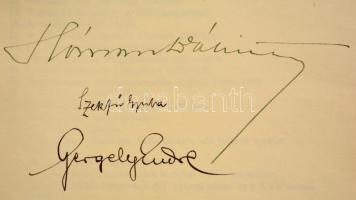 Hóman Bálint
Szekfű Gyula
Gergely Endre
darabanth